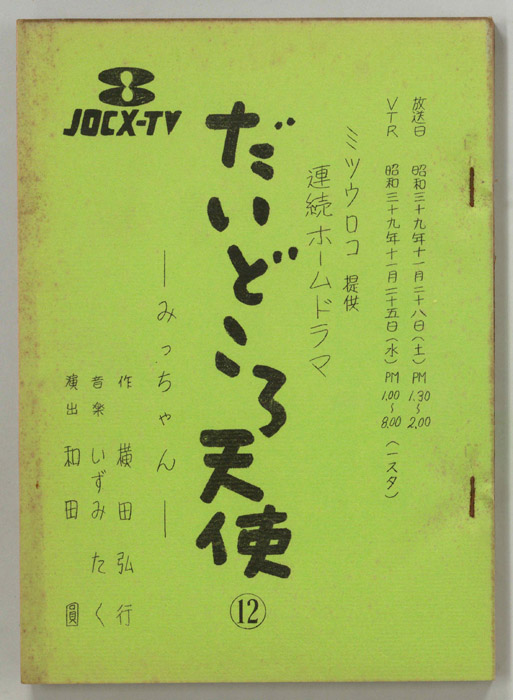 放送日 昭和三十九年十一月二十八日(土) PM 1.30〜2.00
VTR 昭和三十九年十一月二十五日(水) PM 1.00〜8.00 (一スタ)
ミツウロコ 提供
連続ホームドラマ
だいどころ天使 ⑫
―みっちゃん―
作 横田弘行
音楽 いずみたく
演出 和田 圓
JOCX-TV